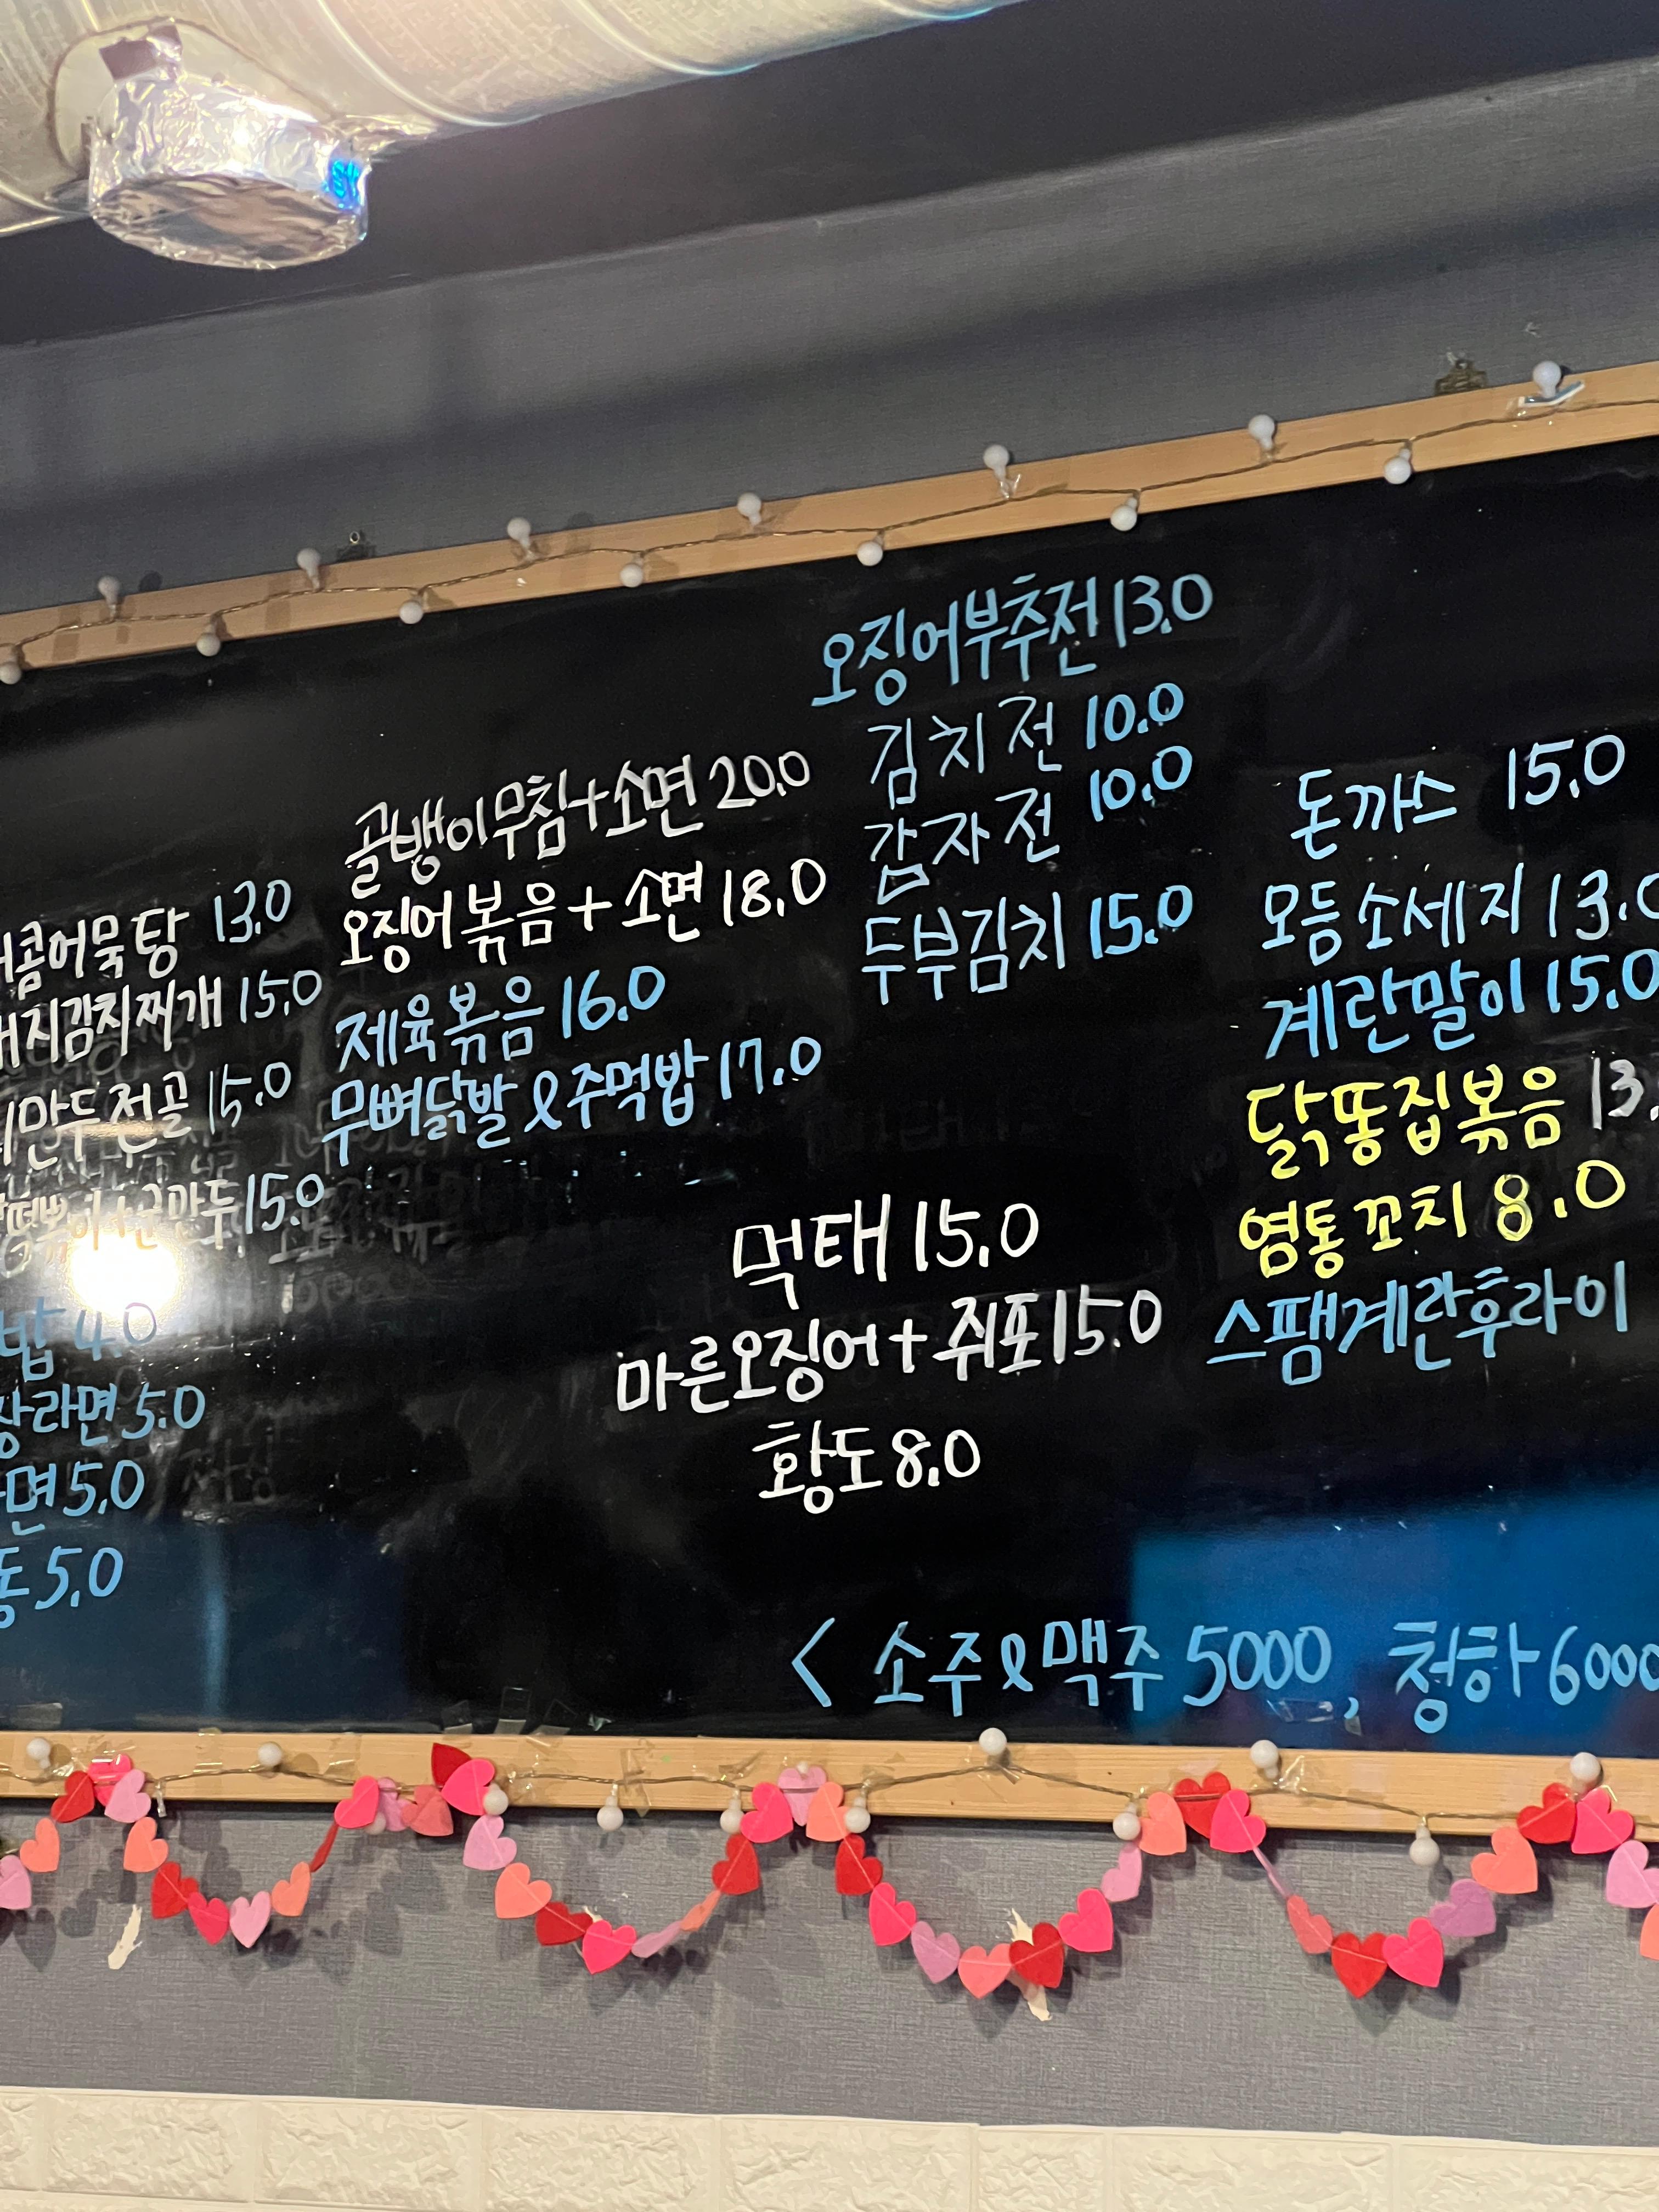 콤어묵탕 13.0
지김치찌개 15.0
만두전골 15.0
떡볶이+군만두 15.0
밥 4.0
라면 5.0
면 5.0
동 5.0
골뱅이무침+소면 20.0
오징어볶음+소면 18.0
제육볶음 16.0
무뼈닭발&주먹밥 17.0
오징어부추전 13.0
김치전 10.0
감자전 10.0
두부김치 15.0
먹태 15.0
마른오징어+쥐포 15.0
황도 8.0
돈까스 15.0
모듬소세지 13.0
계란말이 15.0
닭똥집볶음 13.
염통꼬치 8.0
스팸계란후라이
< 소주&맥주 5000, 청하 6000